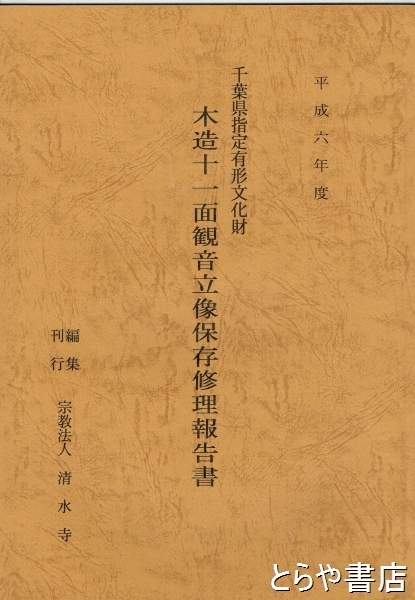 平成六年度
千葉県指定有形文化財
木造十一面観音立像保存修理報告書
編集
刊行
宗教法人 清水寺
とらや書店